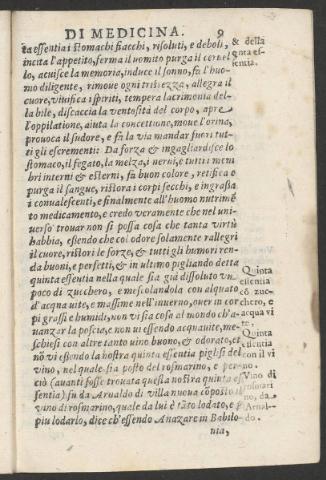 DI MEDICINA. 9
ta essentia i stomachi fiacchi, risoluti, e deboli,
incita l'appetito, ferma il uomito purga il ceruel
lo, acuisce la memoria, induce il sonno, fa l'huo-
mo diligente, rimoue ogni tristezza, allegra il
cuore, viuifica i spiriti, tempera lacrimonia del-
la bile, discaccia la ventosità del corpo, apre
l'oppilatione, aiuta la concettione, moue l'orina,
prouoca il sudore, e fa la via mandar fuori tut-
ti gli escrementi: Da forza & ingagliardisce lo
stomaco, il fegato, la melza, i nerui, e tutti i mem
bri interni & esterni, fa buon colore, retifica e
purga il sangue, ristora i corpi secchi, e ingrassa
i conualescenti, e finalmente all'huomo nutrimē
to medicamento, e credo veramente che nel uni-
uerso trouar non si possa cosa che tanta virtù
habbia, essendo che col odore solamente rallegri
il cuore, ristori le forze, & tutti gli humori ren-
da buoni, e perfetti, & in ultimo pigliando detta
quinta essentia nella quale sia già dissoluto vn
poco di zucchero, e mescolandola con alquato
d'acqua uite, e massime nell'inuerno, ouer in cor
pi grassi e humidi, non vi sia cosa al mondo ch'a-
uanzar la possa, e non ui essendo acquauite, me-
schiesi con altro tanto uino buono, & odorato, et
nō vi essendo la nostra quinta essentia piglisi del
vino, nel quale sia posto del rosmarino, e per-
ciò (auanti fosse trouata questa nostra quinta es
sentia) fu da Arnaldo di villa nuoua cōposto il
vino di rosmarino, quale da lui è tāto lodato, e
piu lodarlo, dice ch'essendo Anazare in Babilo-
nia,
& della
sentia.
Quinta
essentia
cō zuc-
chero, e
acqua vi
te.
Quinta
essentia
con il vi
no.
Vino di
rosmari
no, da
Arnal-
do.